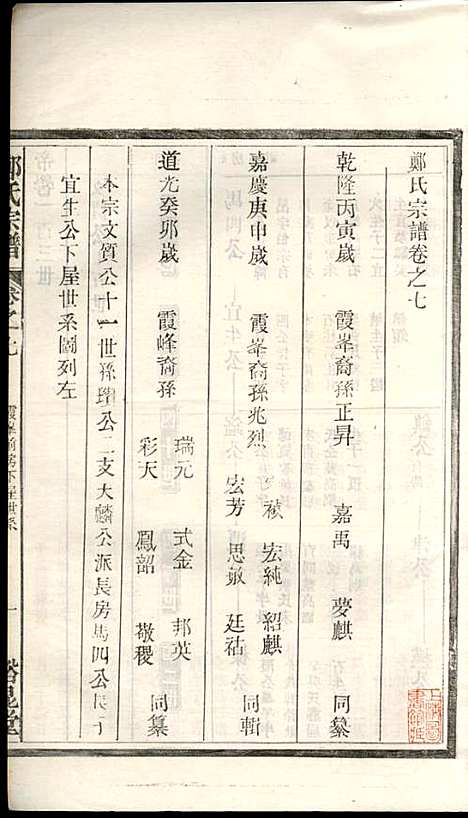 鄭氏宗譜卷之七
乾隆丙寅歲 霞峯裔孫正昇 嘉禹 夢麒 同纂
嘉慶庚申歲 霞峯裔孫兆烈 禎 宏純 紹麒
宏芳 思敏 廷祜 同輯
道光癸卯歲 霞峰裔孫 瑞元 式金 邦英
彩天 鳳韶 敬稷 同纂
本宗文質公十一世孫瓚公二支大麟公派長房馬四公長子
宜生公下屋世系圖列左
鄭氏宗譜 卷之七 霞峯前房下屋世系 一 裕昆堂